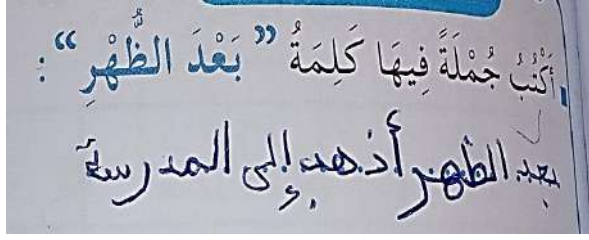 أَكْتُبُ جُمْلَةً فِيهَا كَلِمَةُ "بَعْدَ الظُّهْرِ" :
بعد الظهر أذهب إلى المدرسة